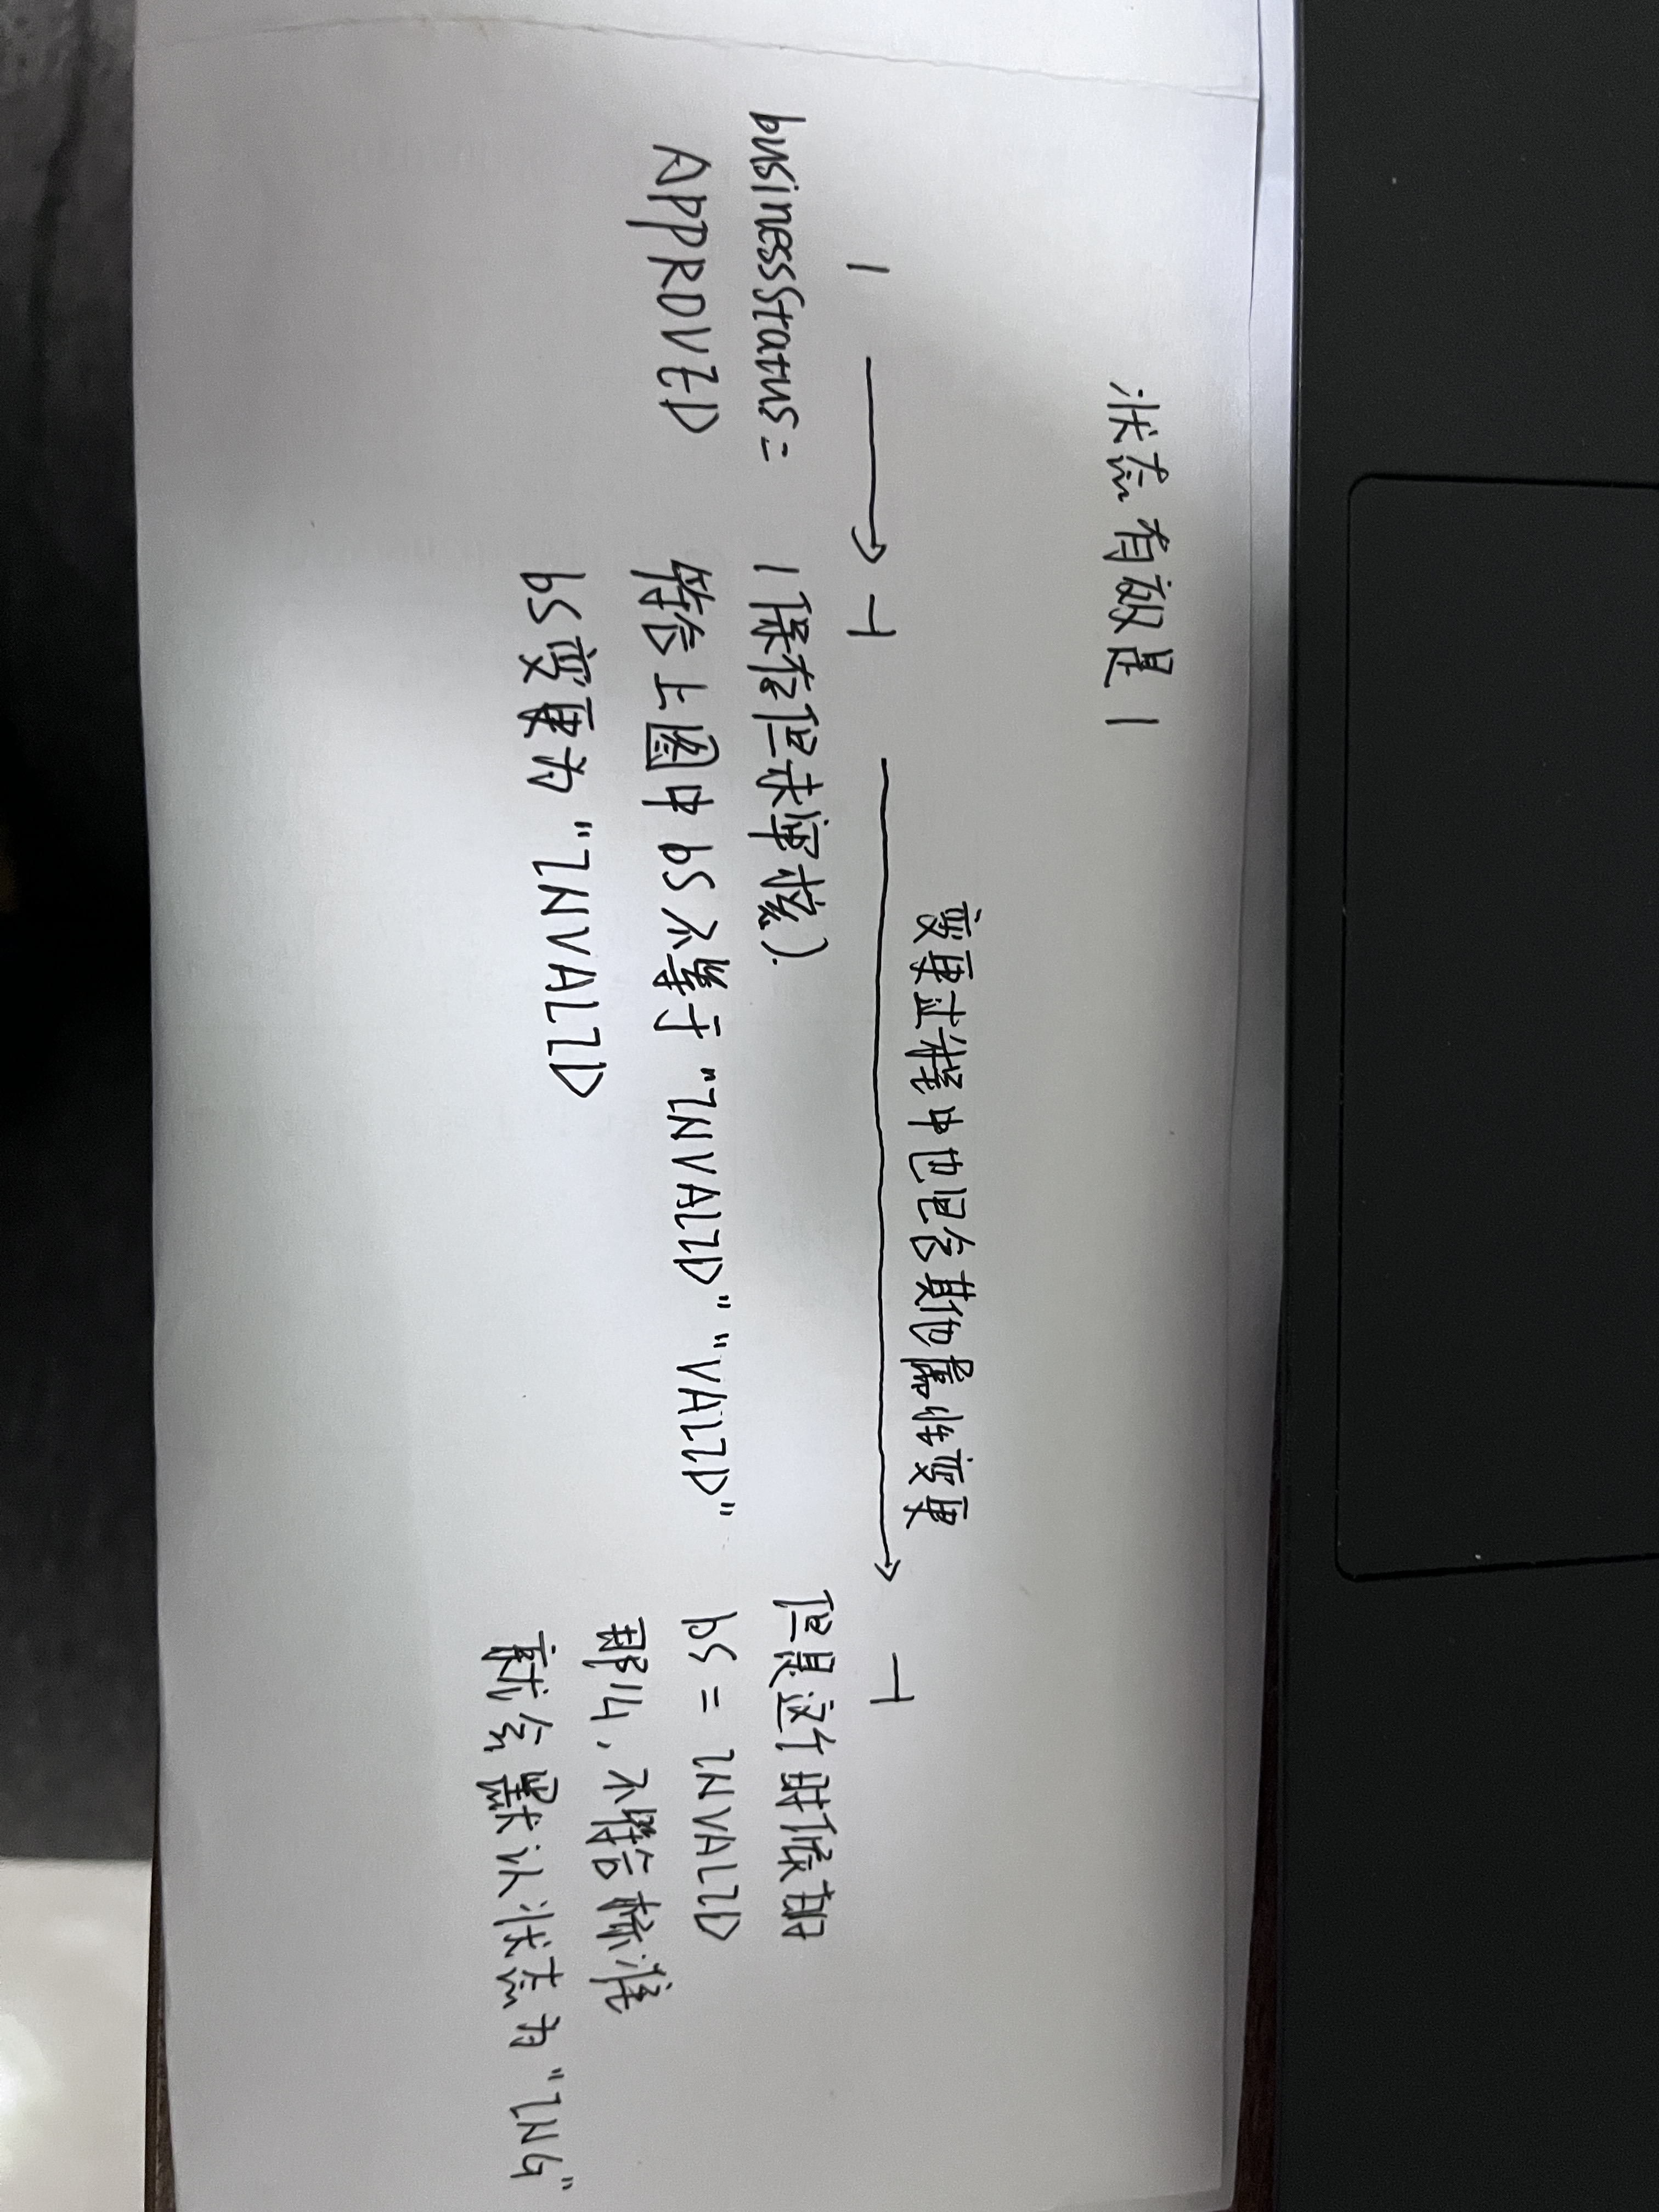 状态有效是1
变更过程中也包含其他属性变更
1 → -1 → -1
businessStatus=
APPROVED
(保存但未审核).
符合上图中bS不等于"INVALID" "VALID"
bS变更为"INVALID
但是这个时候的
bS = INVALID
那么,不符合标准
就会默认状态为"ING"